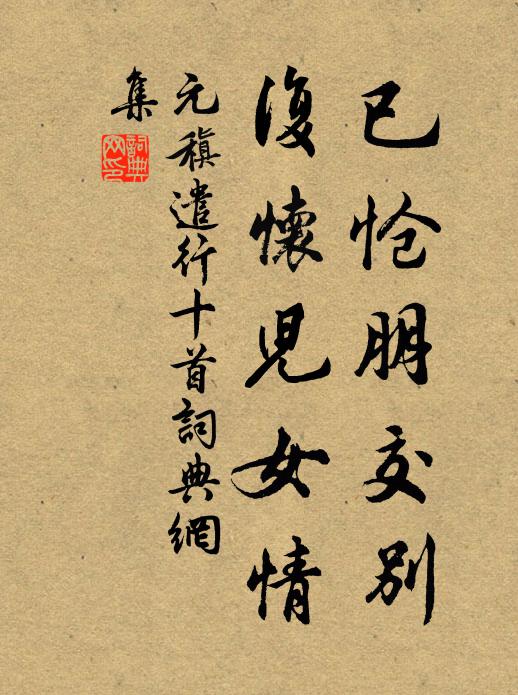 已怆朋交别
復懷児女情
元稹遣行十首詞典網
集
詞典網印